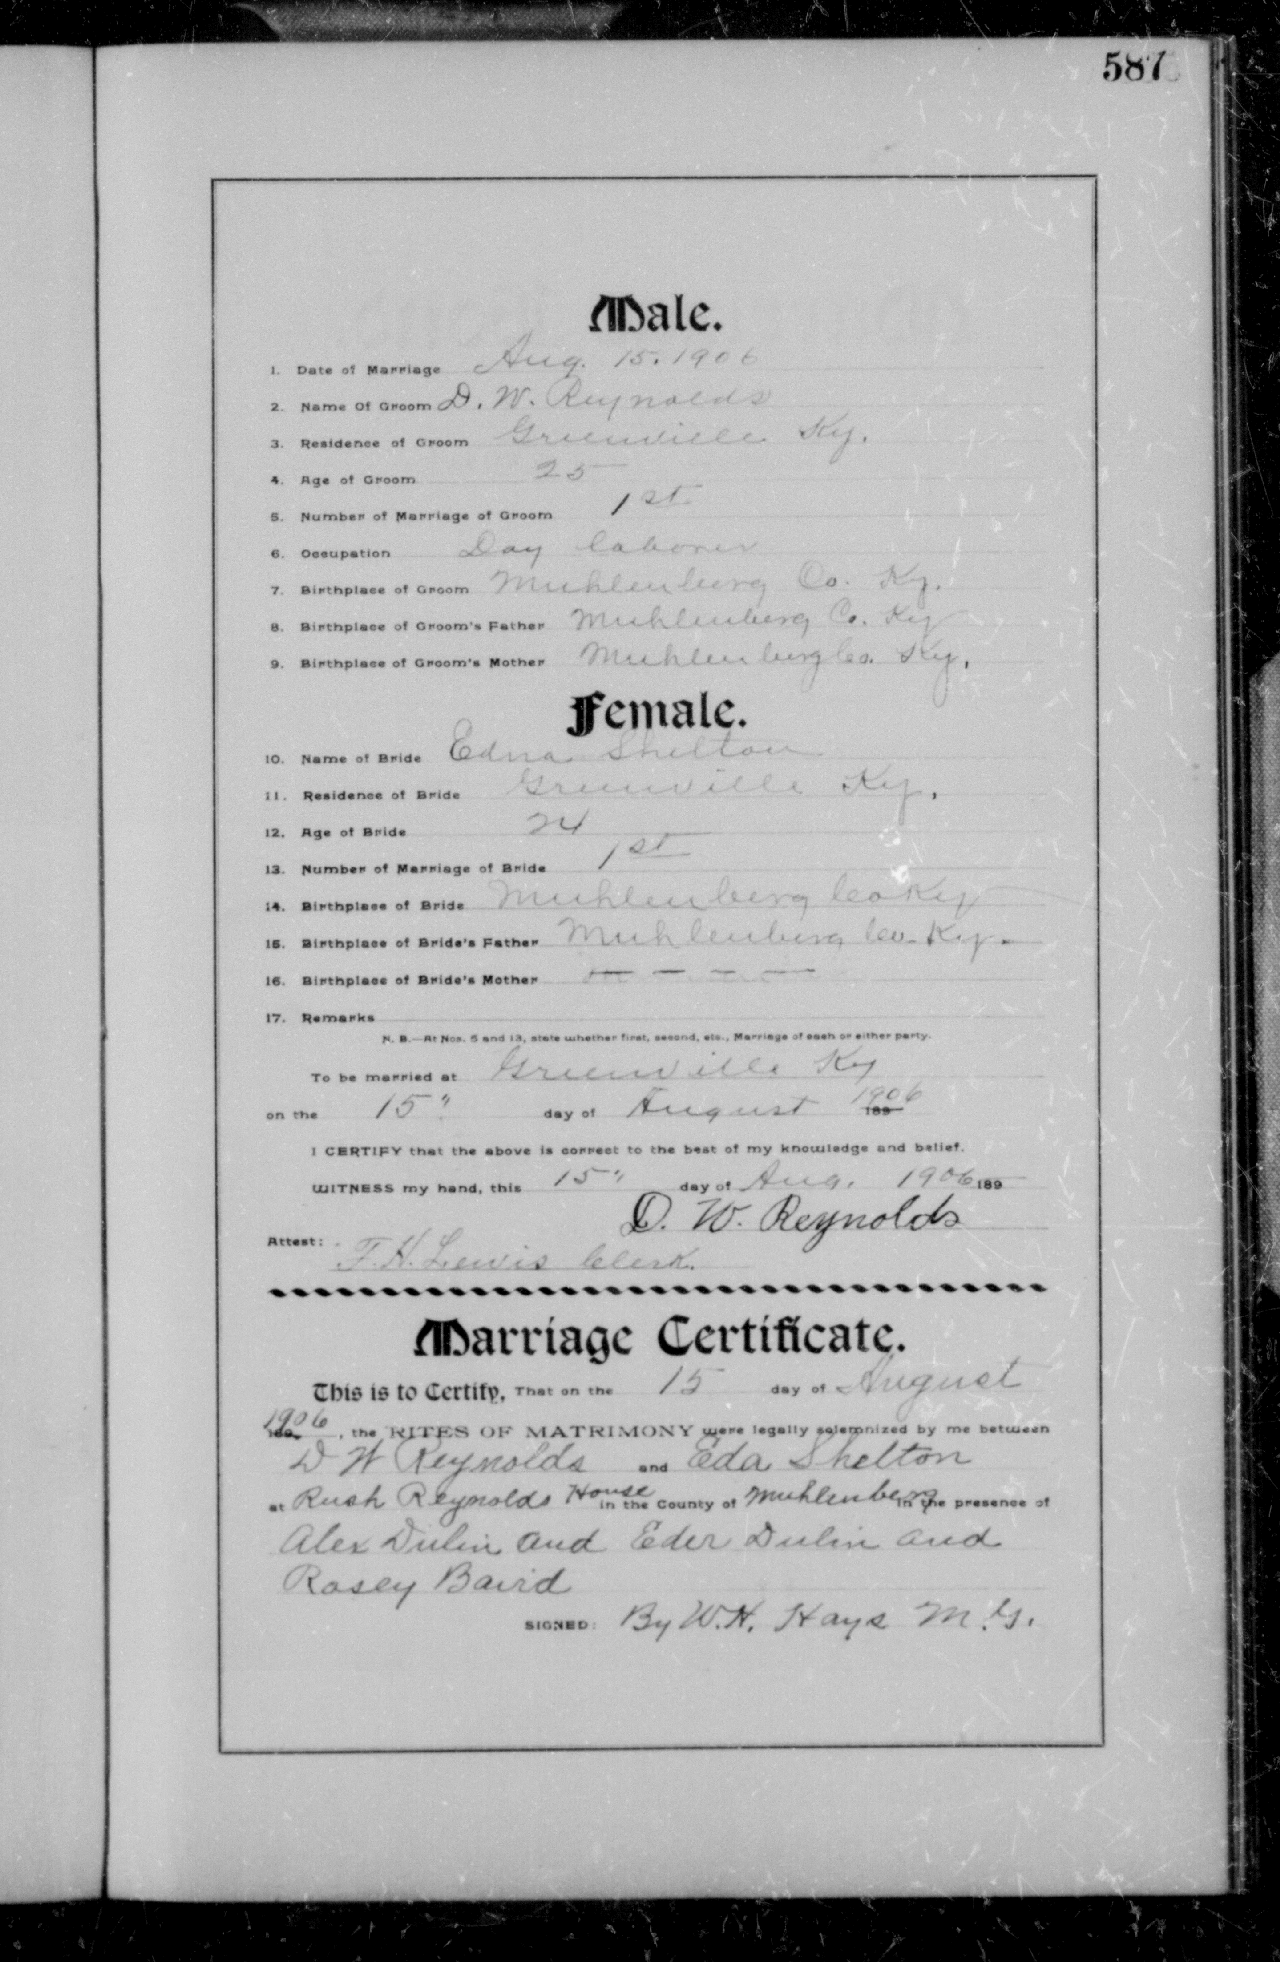 587
Male.
1. Date of Marriage Aug. 15. 1906
2. Name Of Groom D. W. Reynolds
3. Residence of Groom Greenville Ky.
4. Age of Groom 25
5. Number of Marriage of Groom 1st
6. Occupation Day laborer
7. Birthplace of Groom Muhlenberg Co. Ky.
8. Birthplace of Groom's Father Muhlenberg Co. Ky
9. Birthplace of Groom's Mother Muhlenberg Co. Ky.
Female.
10. Name of Bride Edna Shelton
11. Residence of Bride Greenville Ky.
12. Age of Bride 24
13. Number of Marriage of Bride 1st
14. Birthplace of Bride Muhlenberg Co Ky
15. Birthplace of Bride's Father Muhlenberg Co. Ky.
16. Birthplace of Bride's Mother — — — —
17. Remarks
N. B.—At Nos. 5 and 13, state whether first, second, etc., Marriage of each or either party.
To be married at Greenville Ky
on the 15" day of August 1906 189
I CERTIFY that the above is correct to the best of my knowledge and belief.
WITNESS my hand, this 15" day of Aug. 1906 189
D. W. Reynolds
Attest: T. H. Lewis Clerk.
Marriage Certificate.
This is to Certify, That on the 15 day of August
1906 189 , the RITES OF MATRIMONY were legally solemnized by me between
D W Reynolds and Eda Shelton
at Rush Reynolds House in the County of Muhlenberg in the presence of
Alex Dulin and Eder Dulin and
Rosey Baird
SIGNED: By W. H. Hays M. G.